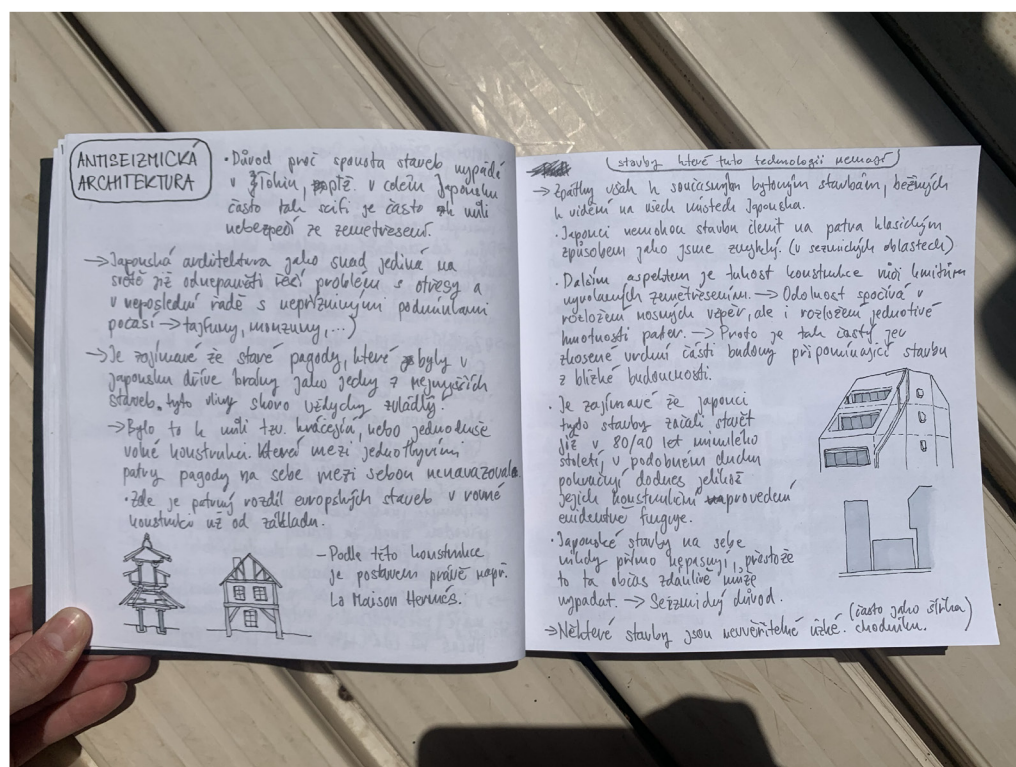 ANTISEIZMICKÁ
ARCHITEKTURA
• Důvod proč spousta staveb vypadá
v Tokiu, popř. v celém Japonsku
často tak scifi je často k vůli
nebezpečí ze zemětřesení.
→ Japonská architektura jako snad jediná na
světě již odnepaměti řeší problém s otřesy a
v neposlední řadě s nepříznivými podmínkami
počasí → tajfuny, monzuny, ...)
→ Je zajímavé že staré pagody, které byly v
Japonsku dříve brány jako jedny z nejvyšších
staveb, tyto vlivy skoro vždycky zvládly.
→ Bylo to k vůli tzv. nebo jednoduše
volné konstrukci. Která mezi jednotlivými
patry pagody na sebe mezi sebou nenavazovala.
• Zde je patrný rozdíl evropských staveb v rovné
konstrukci už od základu.
– Podle této konstrukce
je postaven právě např.
La Maison Hermés.
(stavby které tuto technologii nemají)
→ Zpátky však k současným bytovým stavbám, běžných
k vidění na všech místech Japonska.
• Japonci nemohou stavbu členit na patra klasickým
způsobem jako jsme zvyklý. (v seizmických oblastech)
• Dalším aspektem je tuhost konstrukce vůči kmitům
vyvolaných zemětřesením. → Odolnost spočívá v
rozložení nosných vzpěr, ale i rozložení jednotlivé
hmotnosti pater. → Proto je tak častý jev
zkosené vrchní části budovy připomínající stavbu
z blízké budoucnosti.
• Je zajímavé že japonci
tyto stavby začali stavět
již v 80/90 let minulého
století, v podobném duchu
pokračují dodnes jelikož
jejich konstrukční provedení
evidentně funguje.
• Japonské stavby na sebe
nikdy přímo nepasují, přestože
to tak občas zdánlivě může
vypadat. → Seizmický důvod.
→ Některé stavby jsou neuvěřitelně úzké. (často jako šířka
chodníku.)